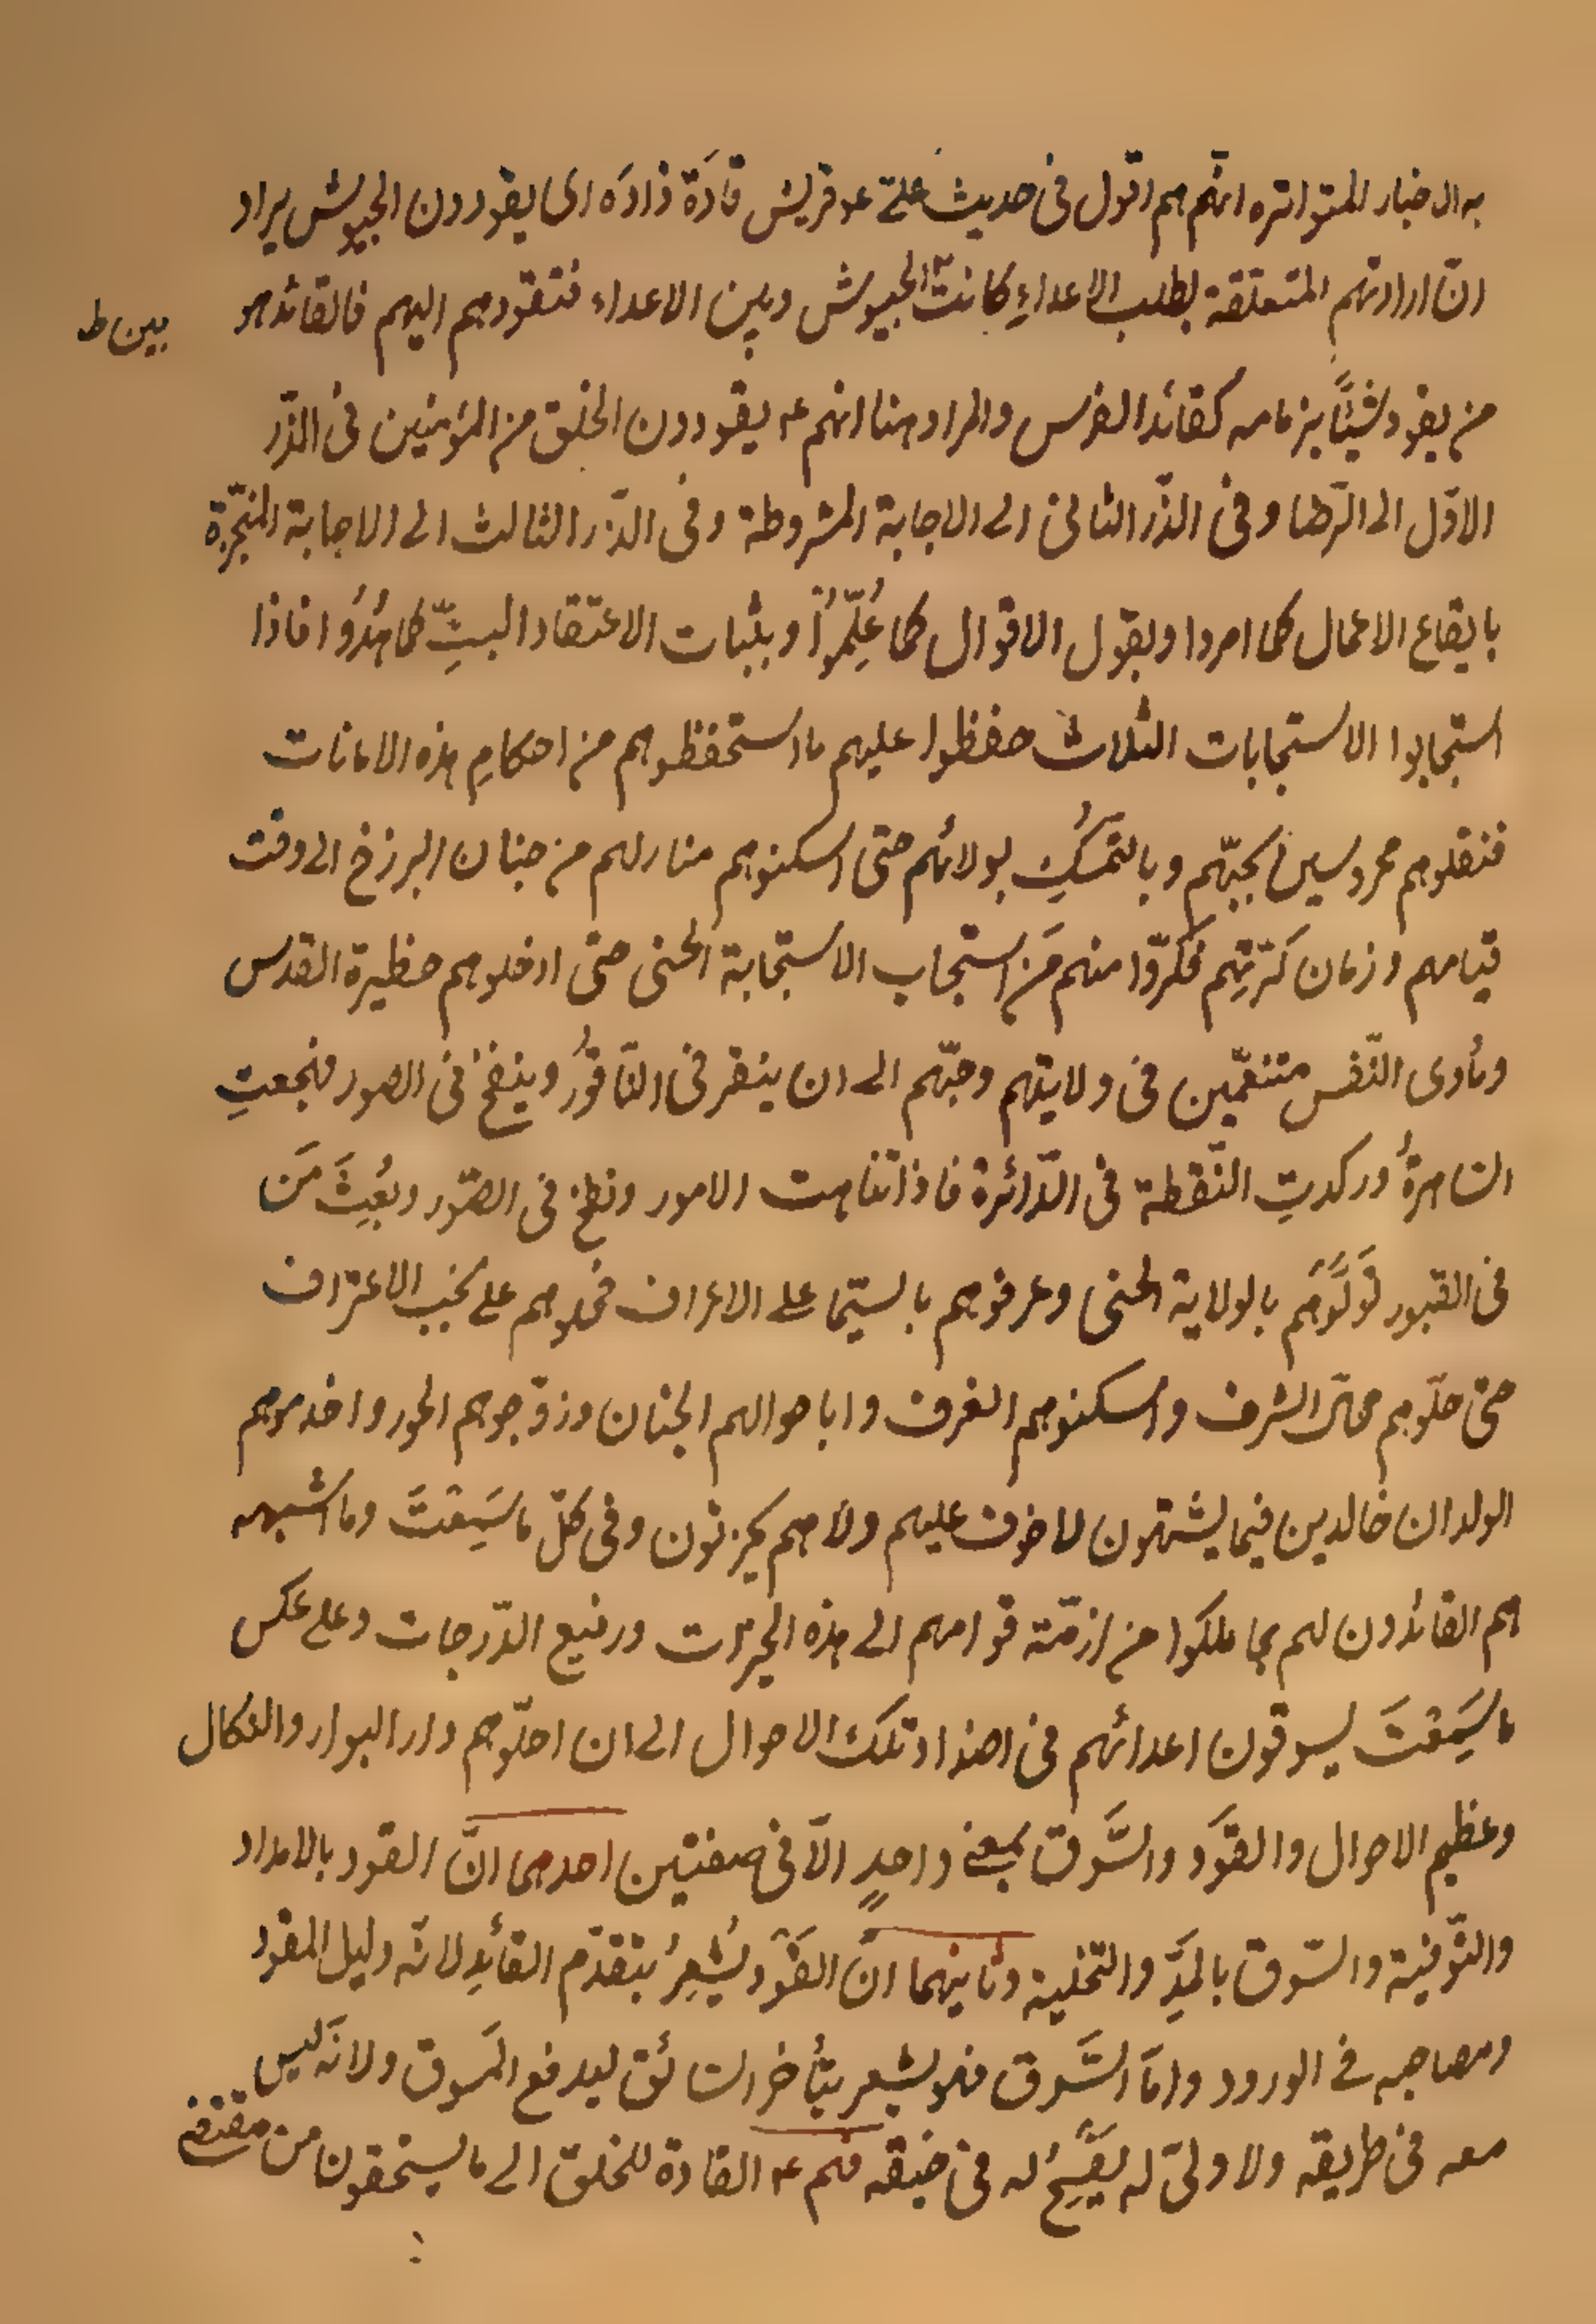 به الاخبار المتواترة انّهم هم اقول فى حديث علىّ ع قريش قادَة ذادَه اى يقودون الجيوش يراد
انّ ارادتهم المتعلقة بطلب الاعداءِ كانت الجيوش وبين الاعداء فتقودهم اليهم فالقائد هو
بين ط
من يقود شيئًا بزمامه كقائد الفرس والمراد هنا انهم ع يقودون الخلق من المؤمنين فى الذّر
الاوّل الى الرّضا وفى الذّر الثانى الى الاجابة المشروطة وفى الذّر الثالث الى الاجابة المنجّزة
بايقاع الاعمال كما امروا وبقول الاقوال كما عُلِّمُوا وبثبات الاعتقاد البتّ كما هُدُوا فاذا
استجابوا الاستجابات الثلاث حفظوا عليهم ما استحفظوهم من احكامِ هذه الامانات
فنقلوهم محروسين بحبّهم وبالتمسّكِ بولائهم حتى اسكنوهم منازلهم من جنان البرزخ الى وقت
قيامهم وزمان كَرّتِهم فكرّوا منهم مَن استجاب الاستجابة الحسنى حتى ادخلوهم حظيرة القدس
ومأوى النّفس متنعّمين فى ولايتهم وحبّهم الى ان ينقر فى النّاقُور وينفخ فى الصور فنجعتِ
السّاهرةُ وركدتِ النّقطة فى الدّائرة فاذا تناهت الامور ونفخ فى الصّور وبُعِثَ مَن
فى القبور تَوَلَّوهُم بالولاية الحسنى وعرفوهم بالسيّما على الاعراف فحملوهم على نجب الاعتراف
حتى حلّوهم محالّ الشرف واسكنوهم الغرف واباحوا لهم الجنان وزوّجوهم الحور واخدموهم
الولدان خالدين فيما يشتهون لا خوف عليهم ولا هم يحزنون وفى كلّ ما سَمِعْتَ وما اشبهه
هم القائدون لهم بما ملكوا من ازمّة قوامهم الى هذه الخيرات ورفيع الدّرجات وعلى عكس
ما سَمِعْتَ يسوقون اعدائهم فى اضداد تلك الاحوال الى ان احلّوهم دار البوار والنكال
وعظيم الاهوال والقَوَد والسَّوق بمعنى واحدٍ الاّ فى صفتين احدهما انّ القود بالامداد
والتّوفية والسّوق بالمدِّ والتّخلية وثانيهما انّ القَوْد يُشْعِرُ بتقدّم القائدِ لانّه دليل المقود
ومصاحبه فى الورود وامّا السَّوق فهو يشعر بتأخر السّائق ليدفع المَسوق ولانّه ليس
معه فى طريقه ولا ولىّ له يَفْسِحُ له فى ضيقه فهم ع القادة للخلق الى ما يستحقون من مقتضى